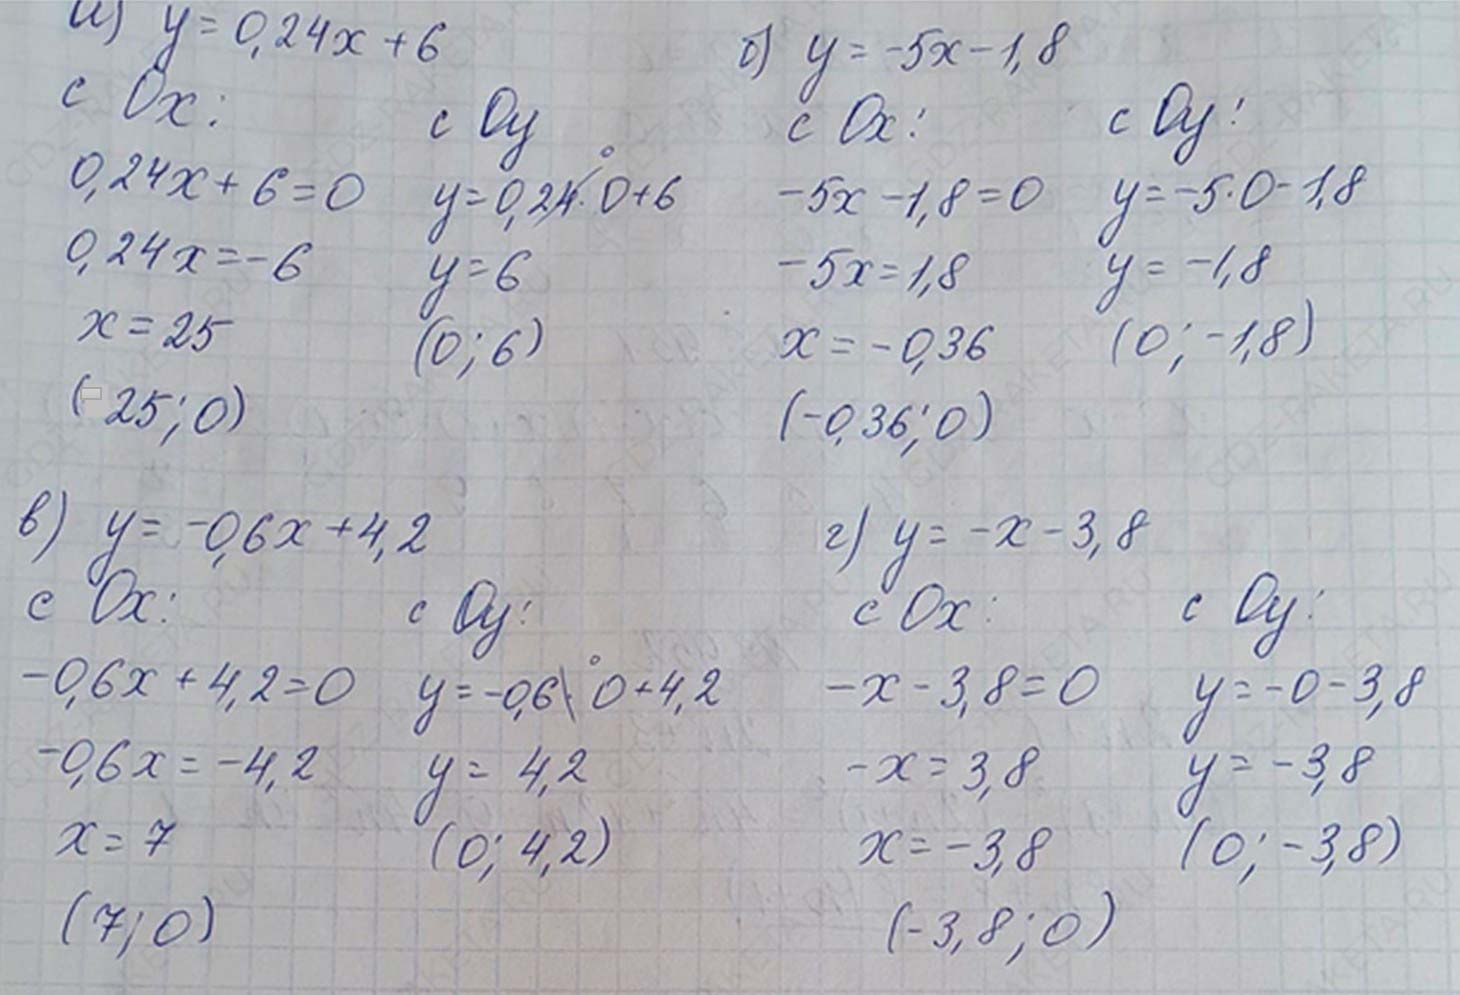 а) y = 0,24x + 6
с Ox:
0,24x + 6 = 0
0,24x = -6
x = 25
(-25; 0)
с Oy
y = 0,24·0+6
0
y = 6
(0; 6)
б) y = -5x - 1,8
с Ox:
-5x - 1,8 = 0
-5x = 1,8
x = -0,36
(-0,36; 0)
с Oy:
y = -5·0 - 1,8
y = -1,8
(0; -1,8)
в) y = -0,6x + 4,2
с Ox:
-0,6x + 4,2 = 0
-0,6x = -4,2
x = 7
(7; 0)
с Oy:
y = -0,6\ 0 + 4,2
0
y = 4,2
(0; 4,2)
г) y = -x - 3,8
с Ox:
-x - 3,8 = 0
-x = 3,8
x = -3,8
(-3,8; 0)
с Oy:
y = -0 - 3,8
y = -3,8
(0; -3,8)